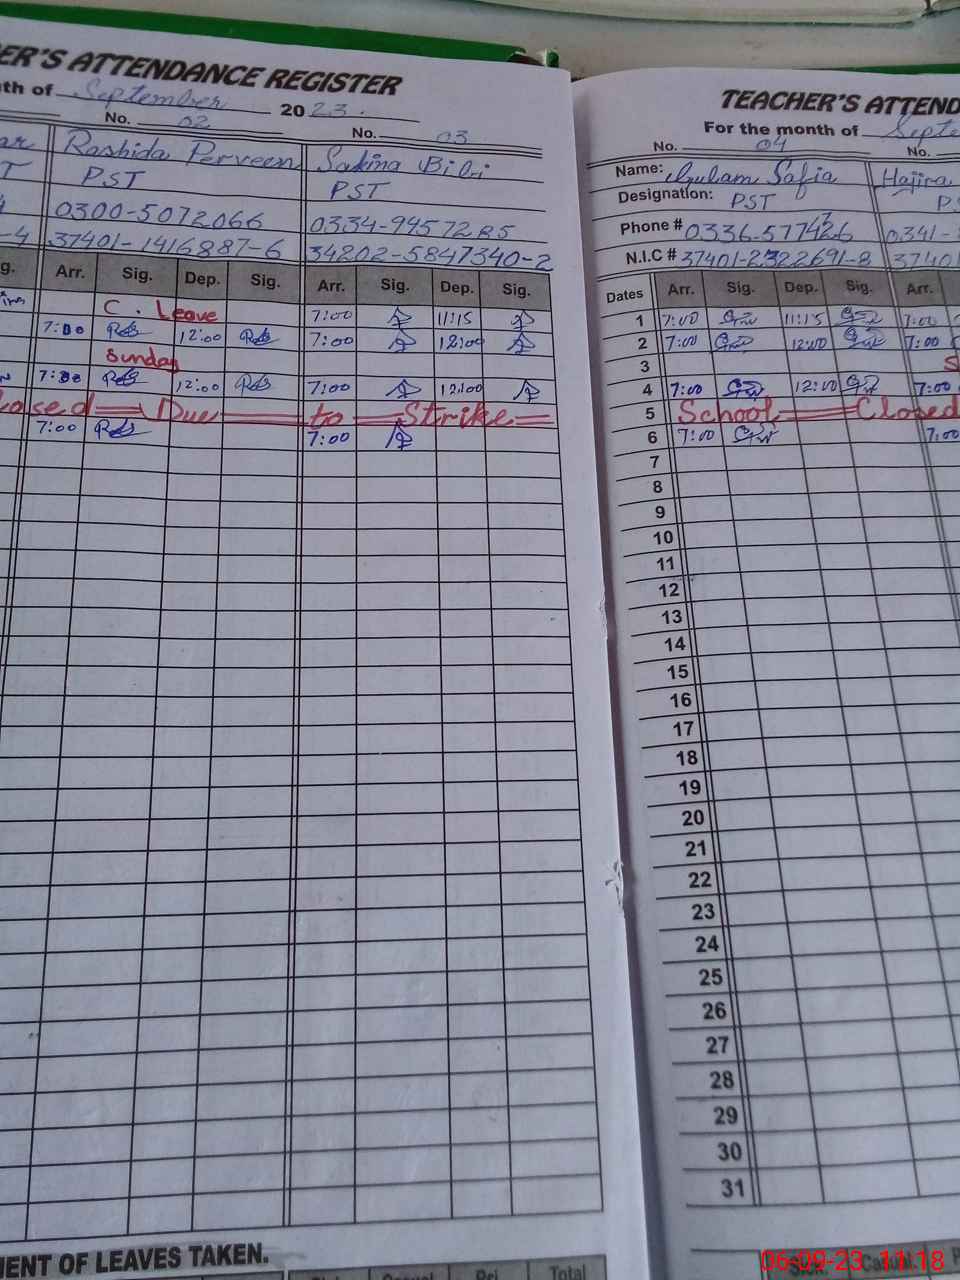 ER'S ATTENDANCE REGISTER
th of September 2023.
No. 02 No. 03
ar Rashida Perveen Sakina Bibi
T PST PST
0300-5072066 0334-9457285
-4 37401-1416887-6 34202-5847340-2
g. Arr. Sig. Dep. Sig. Arr. Sig. Dep. Sig.
C. Leave 7:00 11:15
7:00 12:00 7:00 12:00
Sunday
7:00 12:00 7:00 12:00
losed Due to Strike
7:00 7:00
ENT OF LEAVES TAKEN.
Total
TEACHER'S ATTEND
For the month of Septe
No. 04 No.
Name: Gulam Safia Hajira
Designation: PST PS
Phone # 0336-577426 0341-
N.I.C # 37401-2322691-8 37401
Dates Arr. Sig. Dep. Sig. Arr.
1 7:00 11:15 7:00
2 7:00 12:00 7:00
3 S
4 7:00 12:00 7:00
5 School Closed
6 7:00 7:00
7
8
9
10
11
12
13
14
15
16
17
18
19
20
21
22
23
24
25
26
27
28
29
30
31
06-09-23 11:18